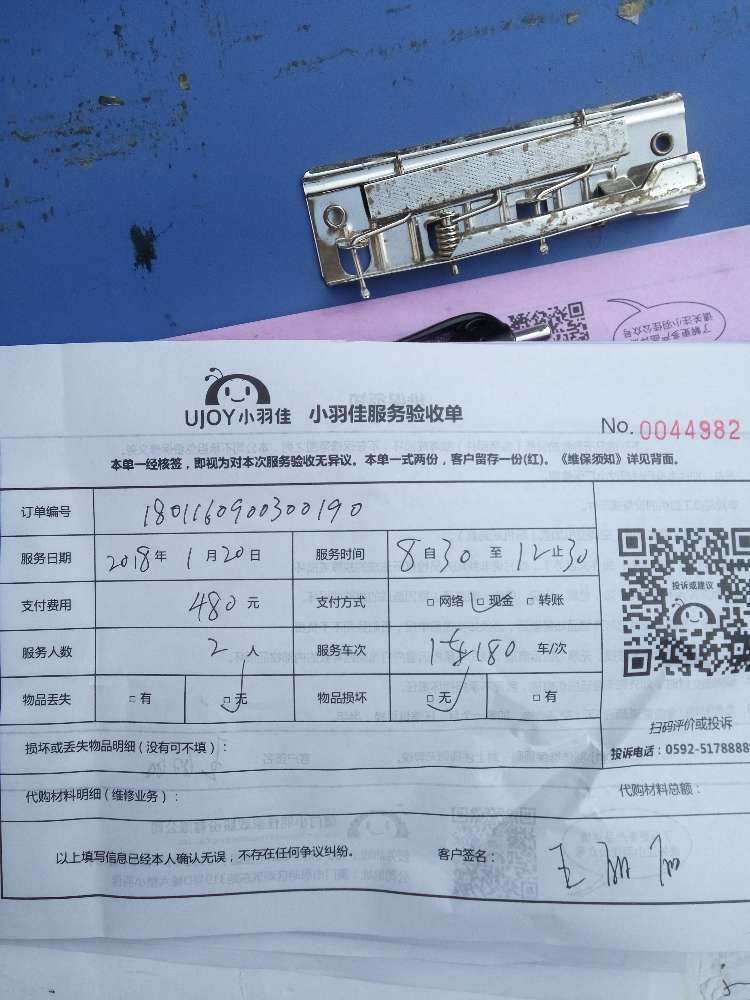 请关注小羽佳公众号
UJOY小羽佳 小羽佳服务验收单
No. 0044982
本单一经核签，即视为对本次服务验收无异议。本单一式两份，客户留存一份(红)。《维保须知》详见背面。
订单编号 1801160900300190
服务日期 2018年 1月20日 服务时间 8自30至12止30
支付费用 480元 支付方式 □网络 □现金 □转账
投诉或建议
服务人数 2人 服务车次 180 车/次
物品丢失 □有 □无 物品损坏 □无 □有
扫码评价或投诉
损坏或丢失物品明细 (没有可不填)：
投诉电话：0592-5178888
代购材料明细 (维修业务)：
代购材料总额：
以上填写信息已经本人确认无误，不存在任何争议纠纷。 客户签名：